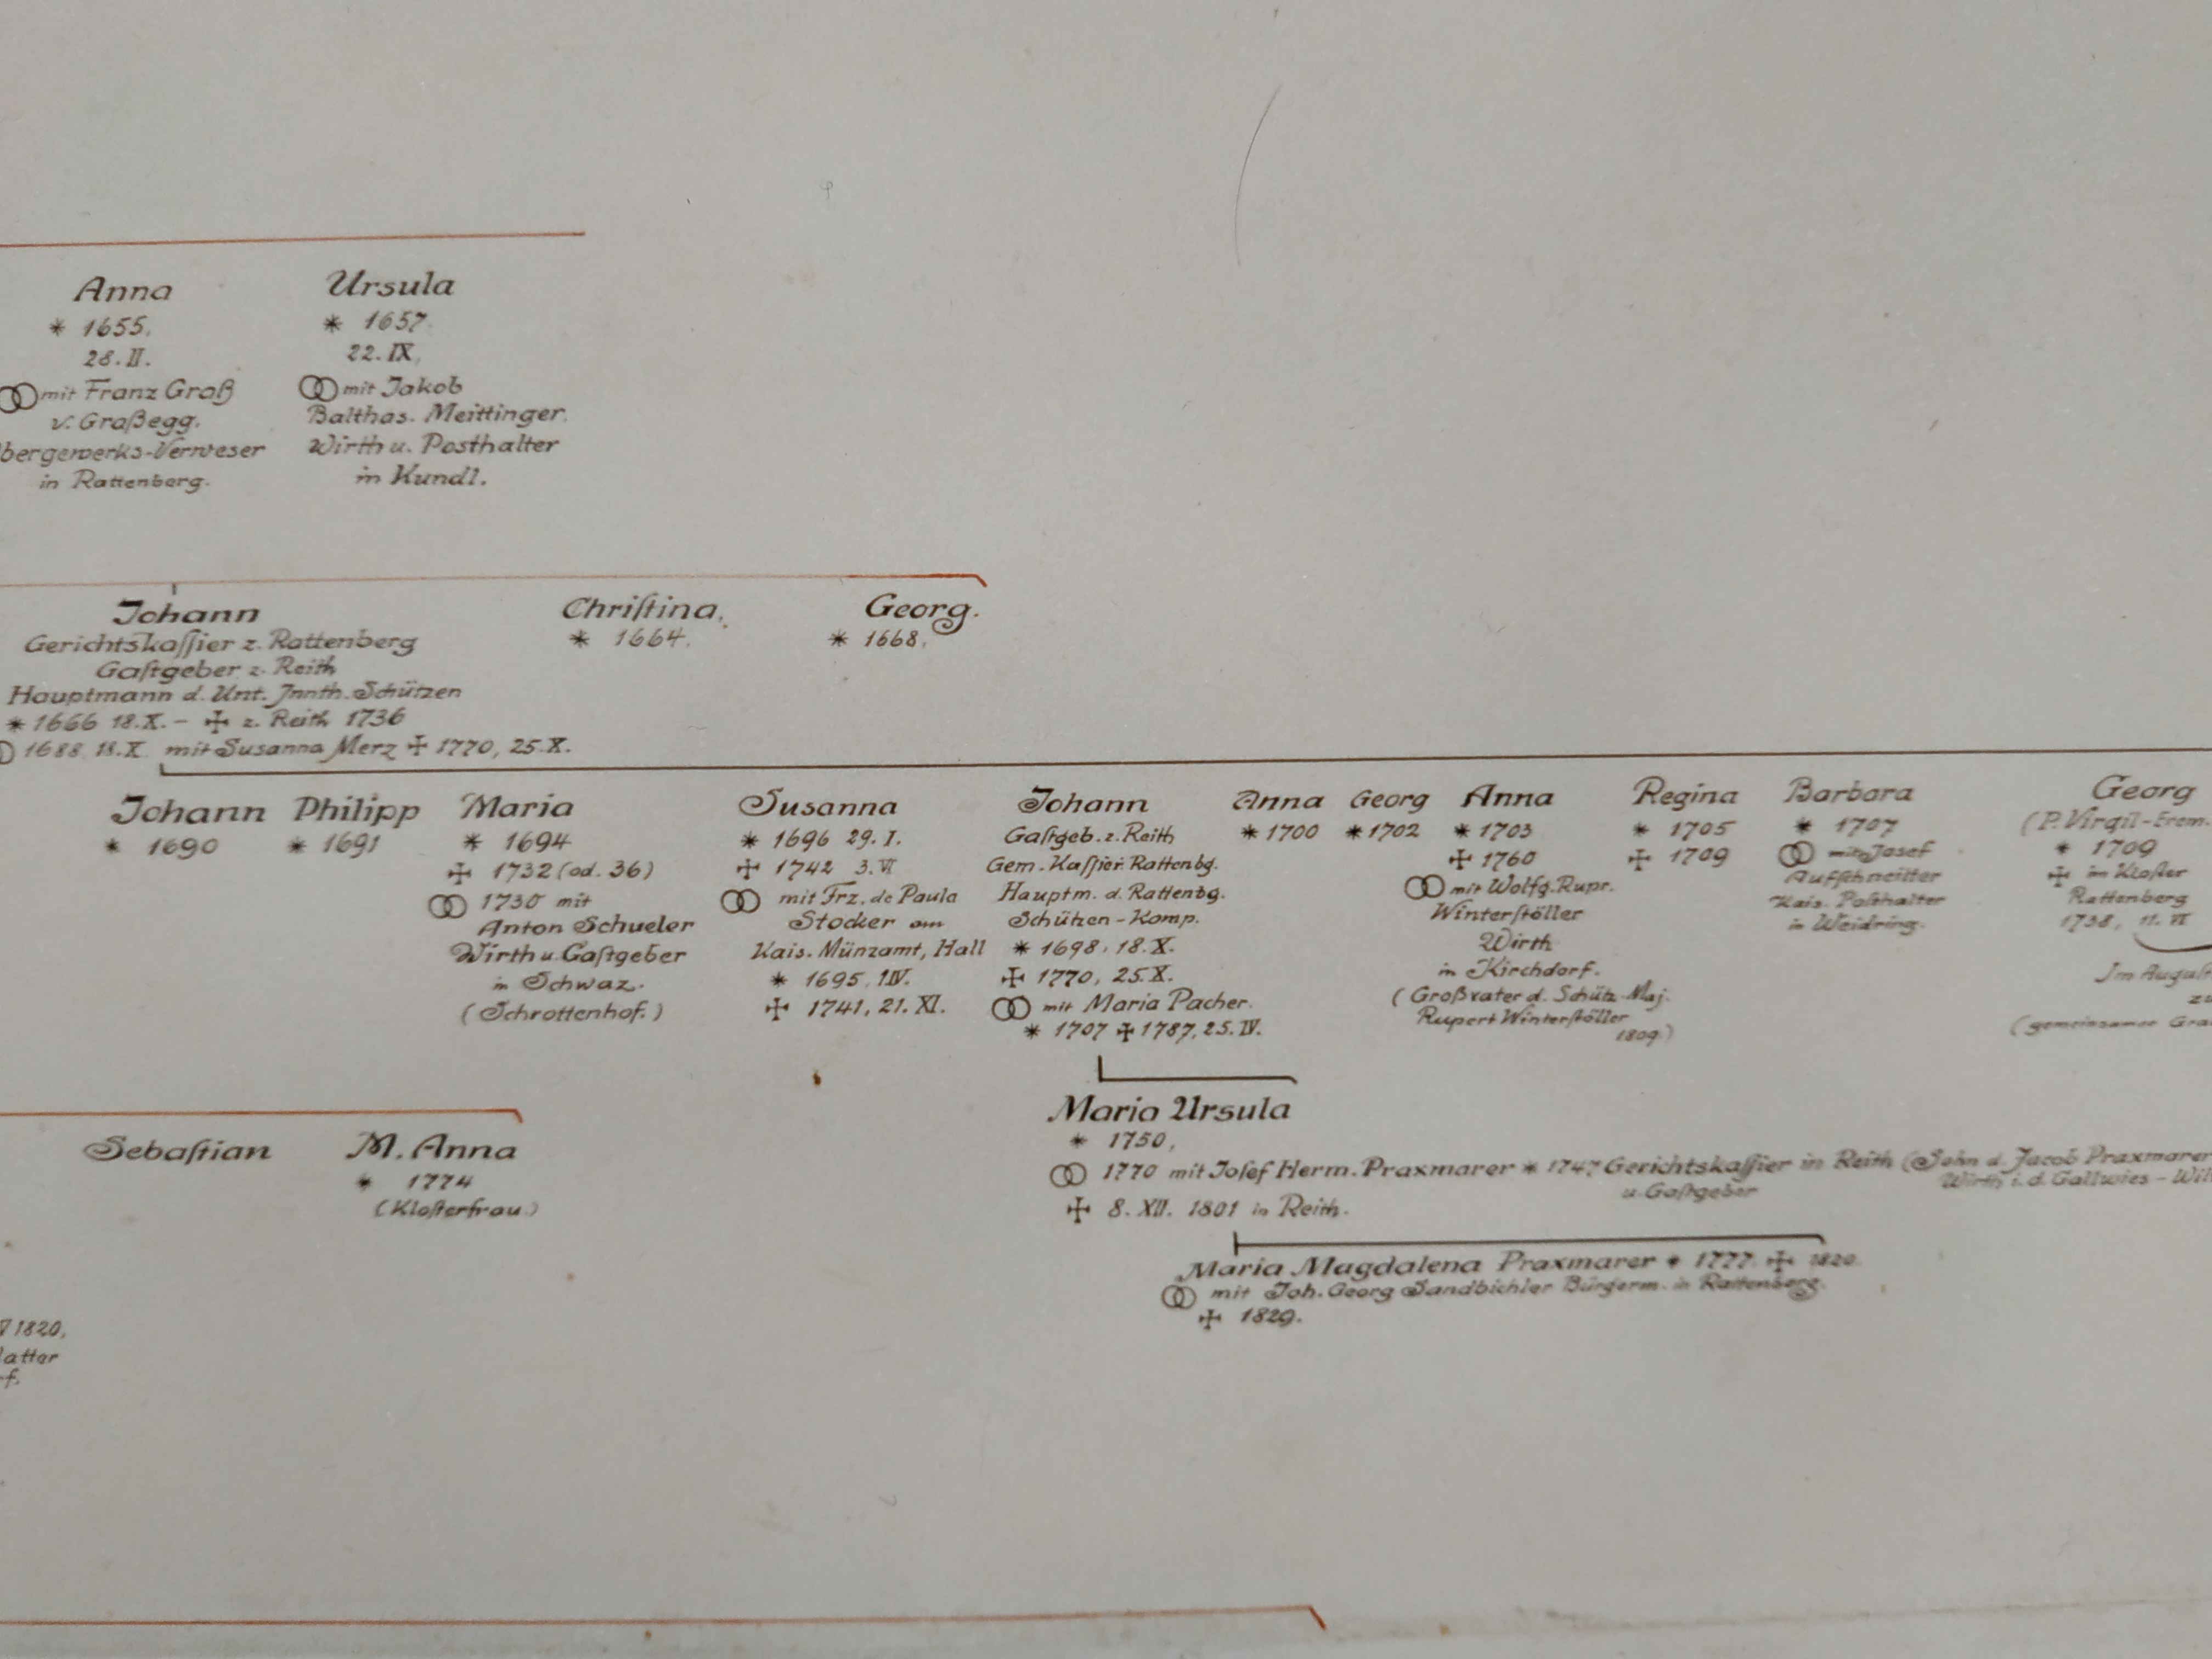 Anna
* 1655.
28. II.
mit Franz Graß
v. Graßegg.
bergwerks-Verweser
in Rattenberg.
Ursula
* 1657.
22. IX.
mit Jakob
Balthas. Meittinger.
Wirth u. Posthalter
in Kundl.
Johann
Gerichtskaſſier z. Rattenberg
Gaſtgeber z. Reith
Hauptmann d. Unt. Innth. Schützen
* 1666 18. X. - ✠ z. Reith 1736
1688 18. X. mit Susanna Merz ✠ 1770, 25. X.
Chriſtina.
* 1664.
Georg.
* 1668.
Johann
* 1690
Philipp
* 1691
Maria
* 1694
✠ 1732 (od. 36)
⚭ 1730 mit
Anton Schueler
Wirth u. Gaſtgeber
in Schwaz.
(Schrottenhof.)
Susanna
* 1696 29. I.
✠ 1742 3. VI
⚭ mit Frz. de Paula
Stocker am
Kais. Münzamt, Hall
* 1695, 1. IV.
✠ 1741, 21. XI.
Johann
Gaſtgeb. z. Reith
Gem.-Kaſſier Rattenbg.
Hauptm. d. Rattenbg.
Schützen-Komp.
* 1698, 18. X.
✠ 1770, 25. X.
⚭ mit Maria Pacher.
* 1707 ✠ 1787, 25. IV.
Anna
* 1700
Georg
* 1702
Anna
* 1703
✠ 1760
⚭ mit Wolfg. Rupr.
Winterſtöller
Wirth
in Kirchdorf.
(Großvater d. Schütz. Maj.
Rupert Winterſtöller
1809)
Regina
* 1705
✠ 1709
Barbara
* 1707
⚭ mit Josef
Aufſchneitter
Kais. Poſthalter
in Waidring.
Georg
(P. Virgil-Erem.
* 1709
✠ im Kloſter
Rattenberg
1738, 11. VI
Im Auguſt
zu
(gemeinsamer Gra
Sebaſtian
M. Anna
* 1774
(Kloſterfrau)
Maria Ursula
* 1750,
⚭ 1770 mit Joſef Herm. Praxmarer * 1747 Gerichtskaſſier in Reith (Sohn d. Jacob Praxmarer
u. Gaſtgeber
Wirth i. d. Gallwies - Wil
✠ 8. XII. 1801 in Reith.
Maria Magdalena Praxmarer * 1777. ✠ 1820.
⚭ mit Joh. Georg Sandbichler Bürgerm. in Rattenberg.
✠ 1829.
1820,
latter
f.